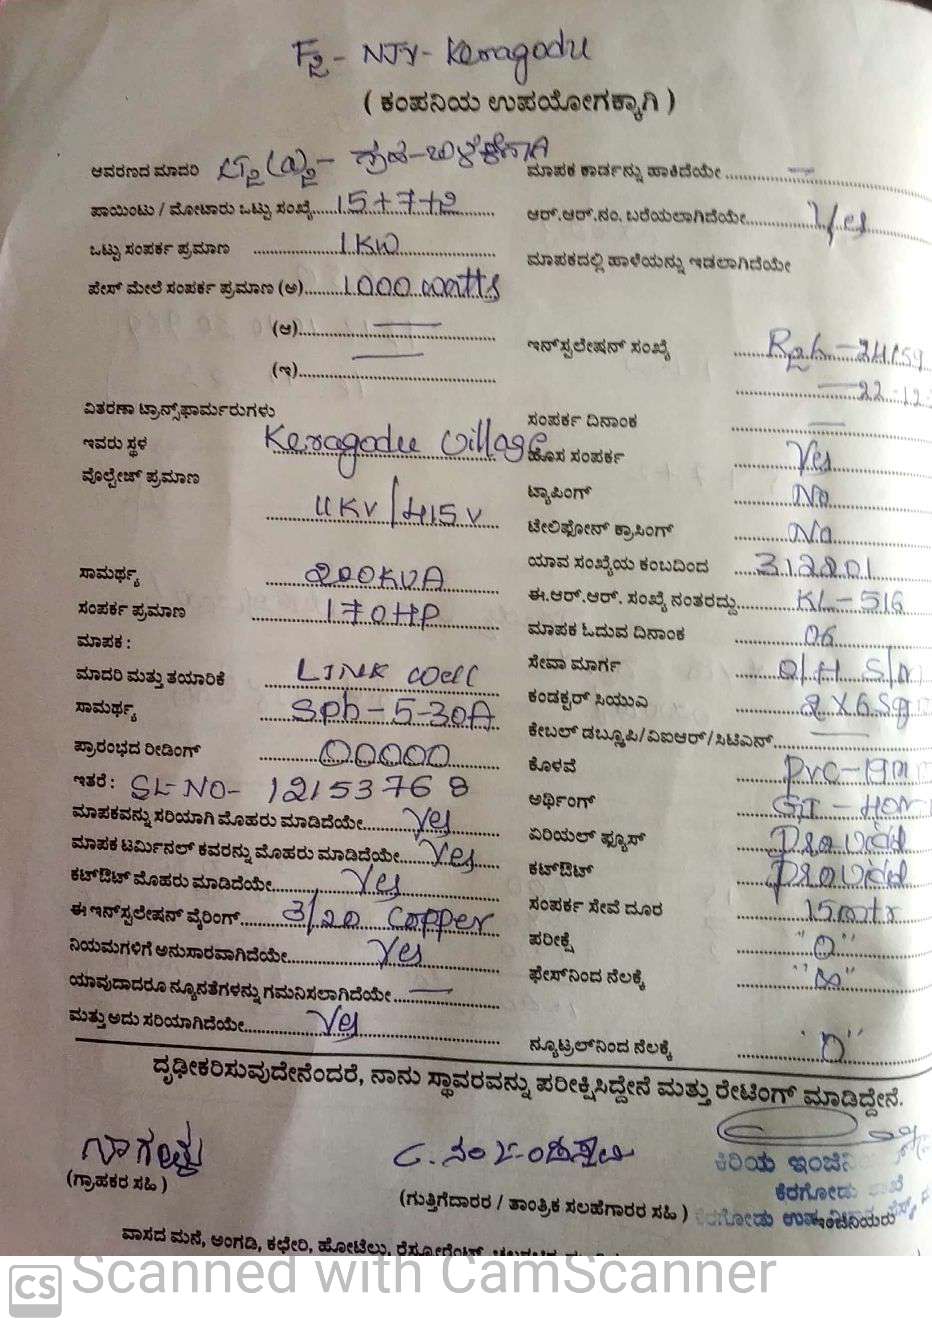 F2 - NJY - Keragodu
( ಕಂಪನಿಯ ಉಪಯೋಗಕ್ಕಾಗಿ )
ಆವರಣದ ಮಾದರಿ
ಪಾಯಿಂಟು / ಮೋಟಾರು ಒಟ್ಟು ಸಂಖ್ಯೆ 15+7+2
ಒಟ್ಟು ಸಂಪರ್ಕ ಪ್ರಮಾಣ 1 KW
ಪೇಸ್ ಮೇಲೆ ಸಂಪರ್ಕ ಪ್ರಮಾಣ (ಅ) 1000 watts
(ಆ) —
(ಇ) —
ವಿತರಣಾ ಟ್ರಾನ್ಸ್‌ಫಾರ್ಮರುಗಳು
ಇವರು ಸ್ಥಳ Keragodu Village
ವೊಲ್ಟೇಜ್ ಪ್ರಮಾಣ
11KV / 415V
ಸಾಮರ್ಥ್ಯ 200KVA
ಸಂಪರ್ಕ ಪ್ರಮಾಣ 170HP
ಮಾಪಕ :
ಮಾದರಿ ಮತ್ತು ತಯಾರಿಕೆ LINK well
ಸಾಮರ್ಥ್ಯ Sph-5-30A
ಪ್ರಾರಂಭದ ರೀಡಿಂಗ್ 00000
ಇತರೆ : SL-NO- 12153768
ಮಾಪಕವನ್ನು ಸರಿಯಾಗಿ ಮೊಹರು ಮಾಡಿದೆಯೇ Yes
ಮಾಪಕ ಟರ್ಮಿನಲ್ ಕವರನ್ನು ಮೊಹರು ಮಾಡಿದೆಯೇ Yes
ಕಟ್‌ಔಟ್ ಮೊಹರು ಮಾಡಿದೆಯೇ Yes
ಈ ಇನ್‌ಸ್ಟಲೇಷನ್ ವೈರಿಂಗ್ 3/20 Copper
ನಿಯಮಗಳಿಗೆ ಅನುಸಾರವಾಗಿದೆಯೇ Yes
ಯಾವುದಾದರೂ ನ್ಯೂನತೆಗಳನ್ನು ಗಮನಿಸಲಾಗಿದೆಯೇ —
ಮತ್ತು ಅದು ಸರಿಯಾಗಿದೆಯೇ Yes
ಮಾಪಕ ಕಾರ್ಡನ್ನು ಹಾಕಿದೆಯೇ —
ಆರ್.ಆರ್.ನಂ. ಬರೆಯಲಾಗಿದೆಯೇ Yes
ಮಾಪಕದಲ್ಲಿ ಹಾಳೆಯನ್ನು ಇಡಲಾಗಿದೆಯೇ
ಇನ್‌ಸ್ಟಲೇಷನ್ ಸಂಖ್ಯೆ
ಸಂಪರ್ಕ ದಿನಾಂಕ —
ಹೊಸ ಸಂಪರ್ಕ Yes
ಟ್ಯಾಪಿಂಗ್ No
ಟೇಲಿಫೋನ್ ಕ್ರಾಸಿಂಗ್ No
ಯಾವ ಸಂಖ್ಯೆಯ ಕಂಬದಿಂದ 312201
ಈ.ಆರ್.ಆರ್. ಸಂಖ್ಯೆ ನಂತರದ್ದು KL-516
ಮಾಪಕ ಓದುವ ದಿನಾಂಕ 06
ಸೇವಾ ಮಾರ್ಗ O/H S/M
ಕಂಡಕ್ಟರ್ ಸಿಯುಎ 2X6Sq
ಕೇಬಲ್ ಡಬ್ಲ್ಯೂಪಿ/ವಿಐಆರ್/ಸಿಟಿಎನ್ —
ಕೊಳವೆ PVC-19m
ಅರ್ಥಿಂಗ್ GI -
ಏರಿಯಲ್ ಫ್ಯೂಸ್ Provided
ಕಟ್‌ಔಟ್ Provided
ಸಂಪರ್ಕ ಸೇವೆ ದೂರ 15mtr
ಪರೀಕ್ಷೆ "0"
ಫೇಸ್‌ನಿಂದ ನೆಲಕ್ಕೆ "∞"
ನ್ಯೂಟ್ರಲ್‌ನಿಂದ ನೆಲಕ್ಕೆ "0"
ದೃಢೀಕರಿಸುವುದೇನೆಂದರೆ, ನಾನು ಸ್ಥಾವರವನ್ನು ಪರೀಕ್ಷಿಸಿದ್ದೇನೆ ಮತ್ತು ರೇಟಿಂಗ್ ಮಾಡಿದ್ದೇನೆ.
(ಗ್ರಾಹಕರ ಸಹಿ )
(ಗುತ್ತಿಗೆದಾರರ / ತಾಂತ್ರಿಕ ಸಲಹೆಗಾರರ ಸಹಿ )
ಕಿರಿಯ ಇಂಜಿನಿ
ಕೆರಗೋಡು ಶಾಖೆ
ಕೆರಗೋಡು ಉಪ
ಇಂಜಿನಿಯರು
ವಾಸದ ಮನೆ, ಅಂಗಡಿ, ಕಛೇರಿ, ಹೋಟೆಲು,
CS Scanned with CamScanner